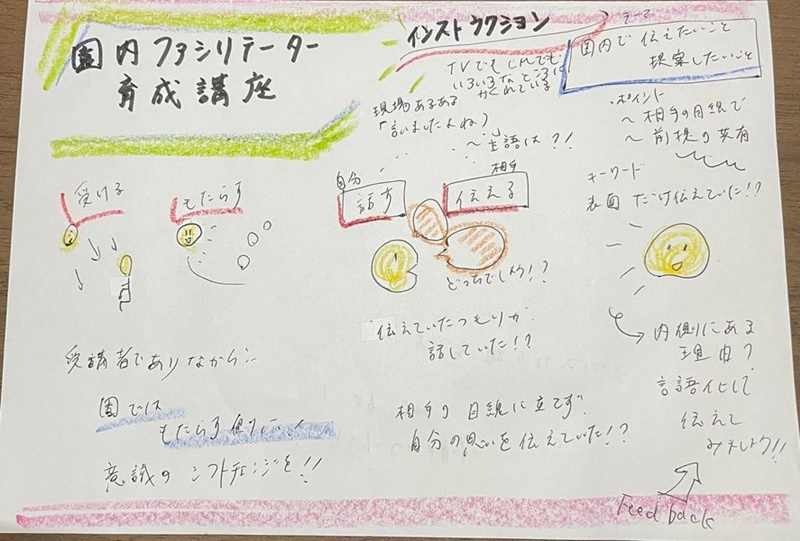 園内ファシリテーター
育成講座
受ける
もたらす
受講者でありながら…
園では
もたらす側に…
意識のシフトチェンジを!!
インストラクション
TVでも
いろいろなところに
かくれている
現場あるある
「言いましたよね」
〜主語は?!
自分
話す
相手
伝える
どっちでしょう!?
伝えていたつもりが
話していた!?
相手の目線に立てず
自分の思いを伝えていた!?
テーマ
園内で伝えたいこと
提案したいこと
・ポイント
〜相手の目線で
〜前提の共有
キーワード
表面だけ伝えていた!?
内側にある
理由?
言語化して
伝えて
みましょう!!
Feed back